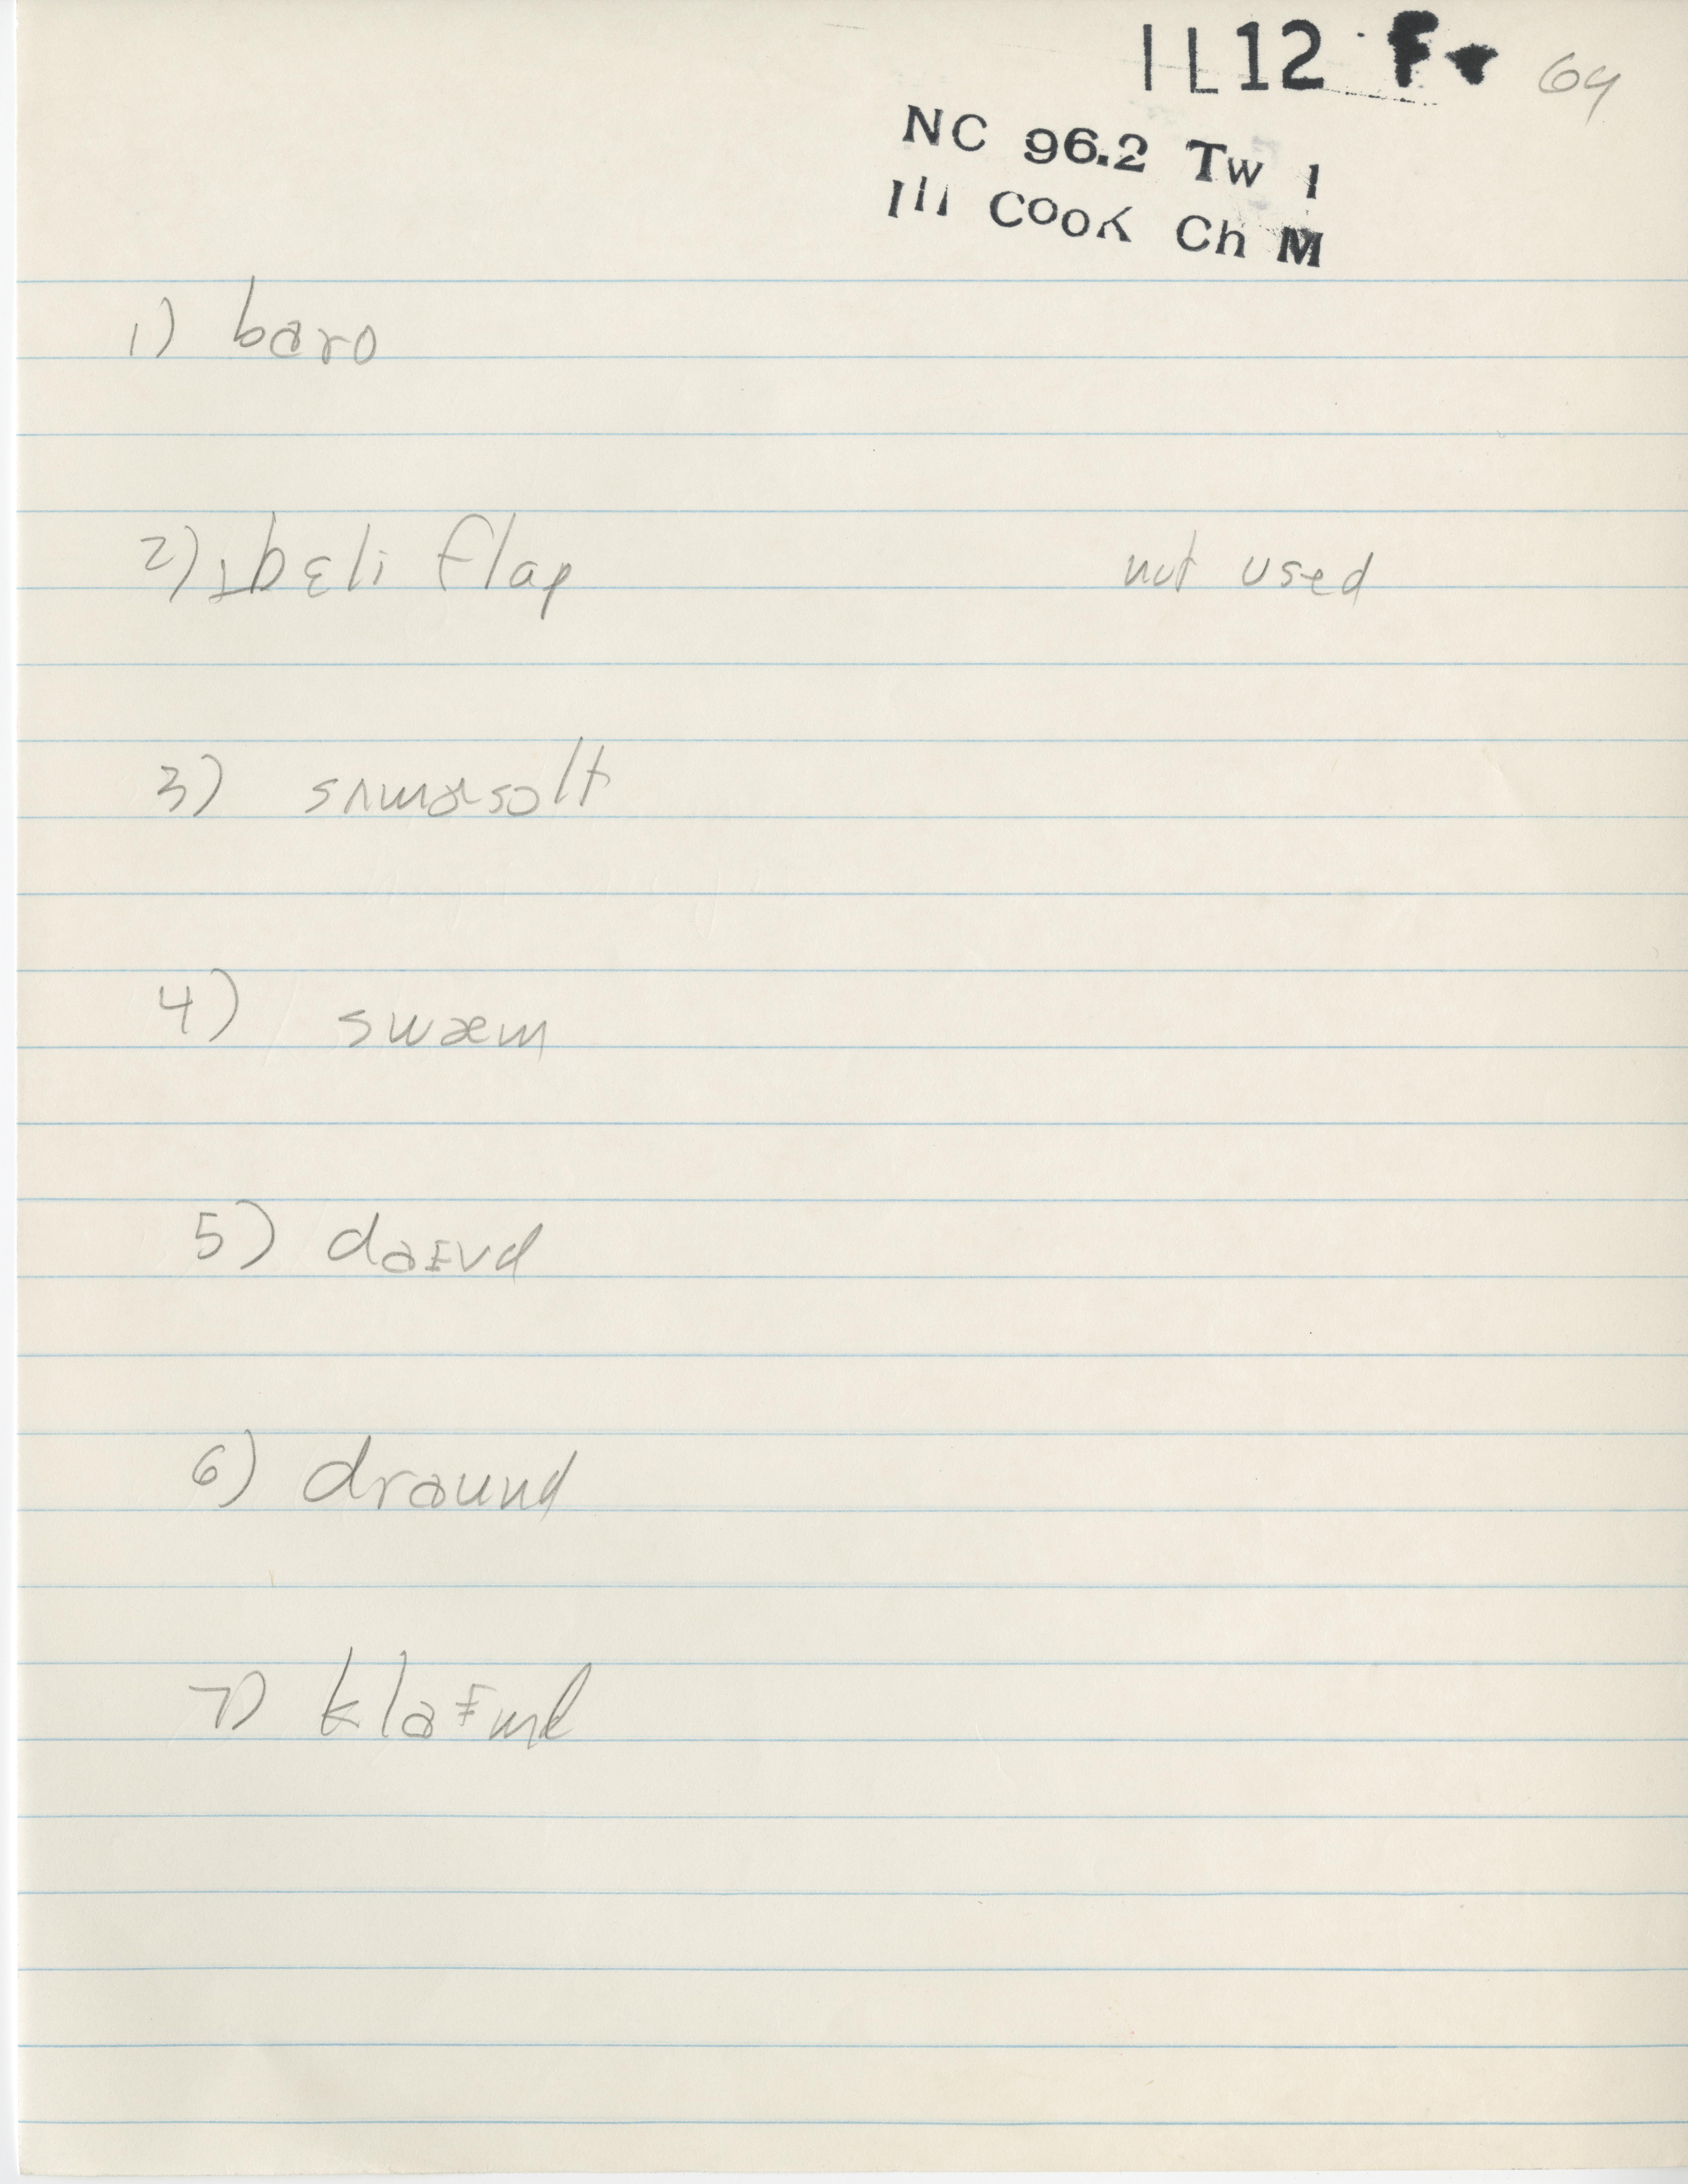 IL12 F 64
NC 96.2 Tw 1
Ill Cook Ch M
1) baro
2) ꞮbƐli flap not used
3) sʌmɚsolt
4) swæm
5) daɪvd
6) draund
7) klaɪmd